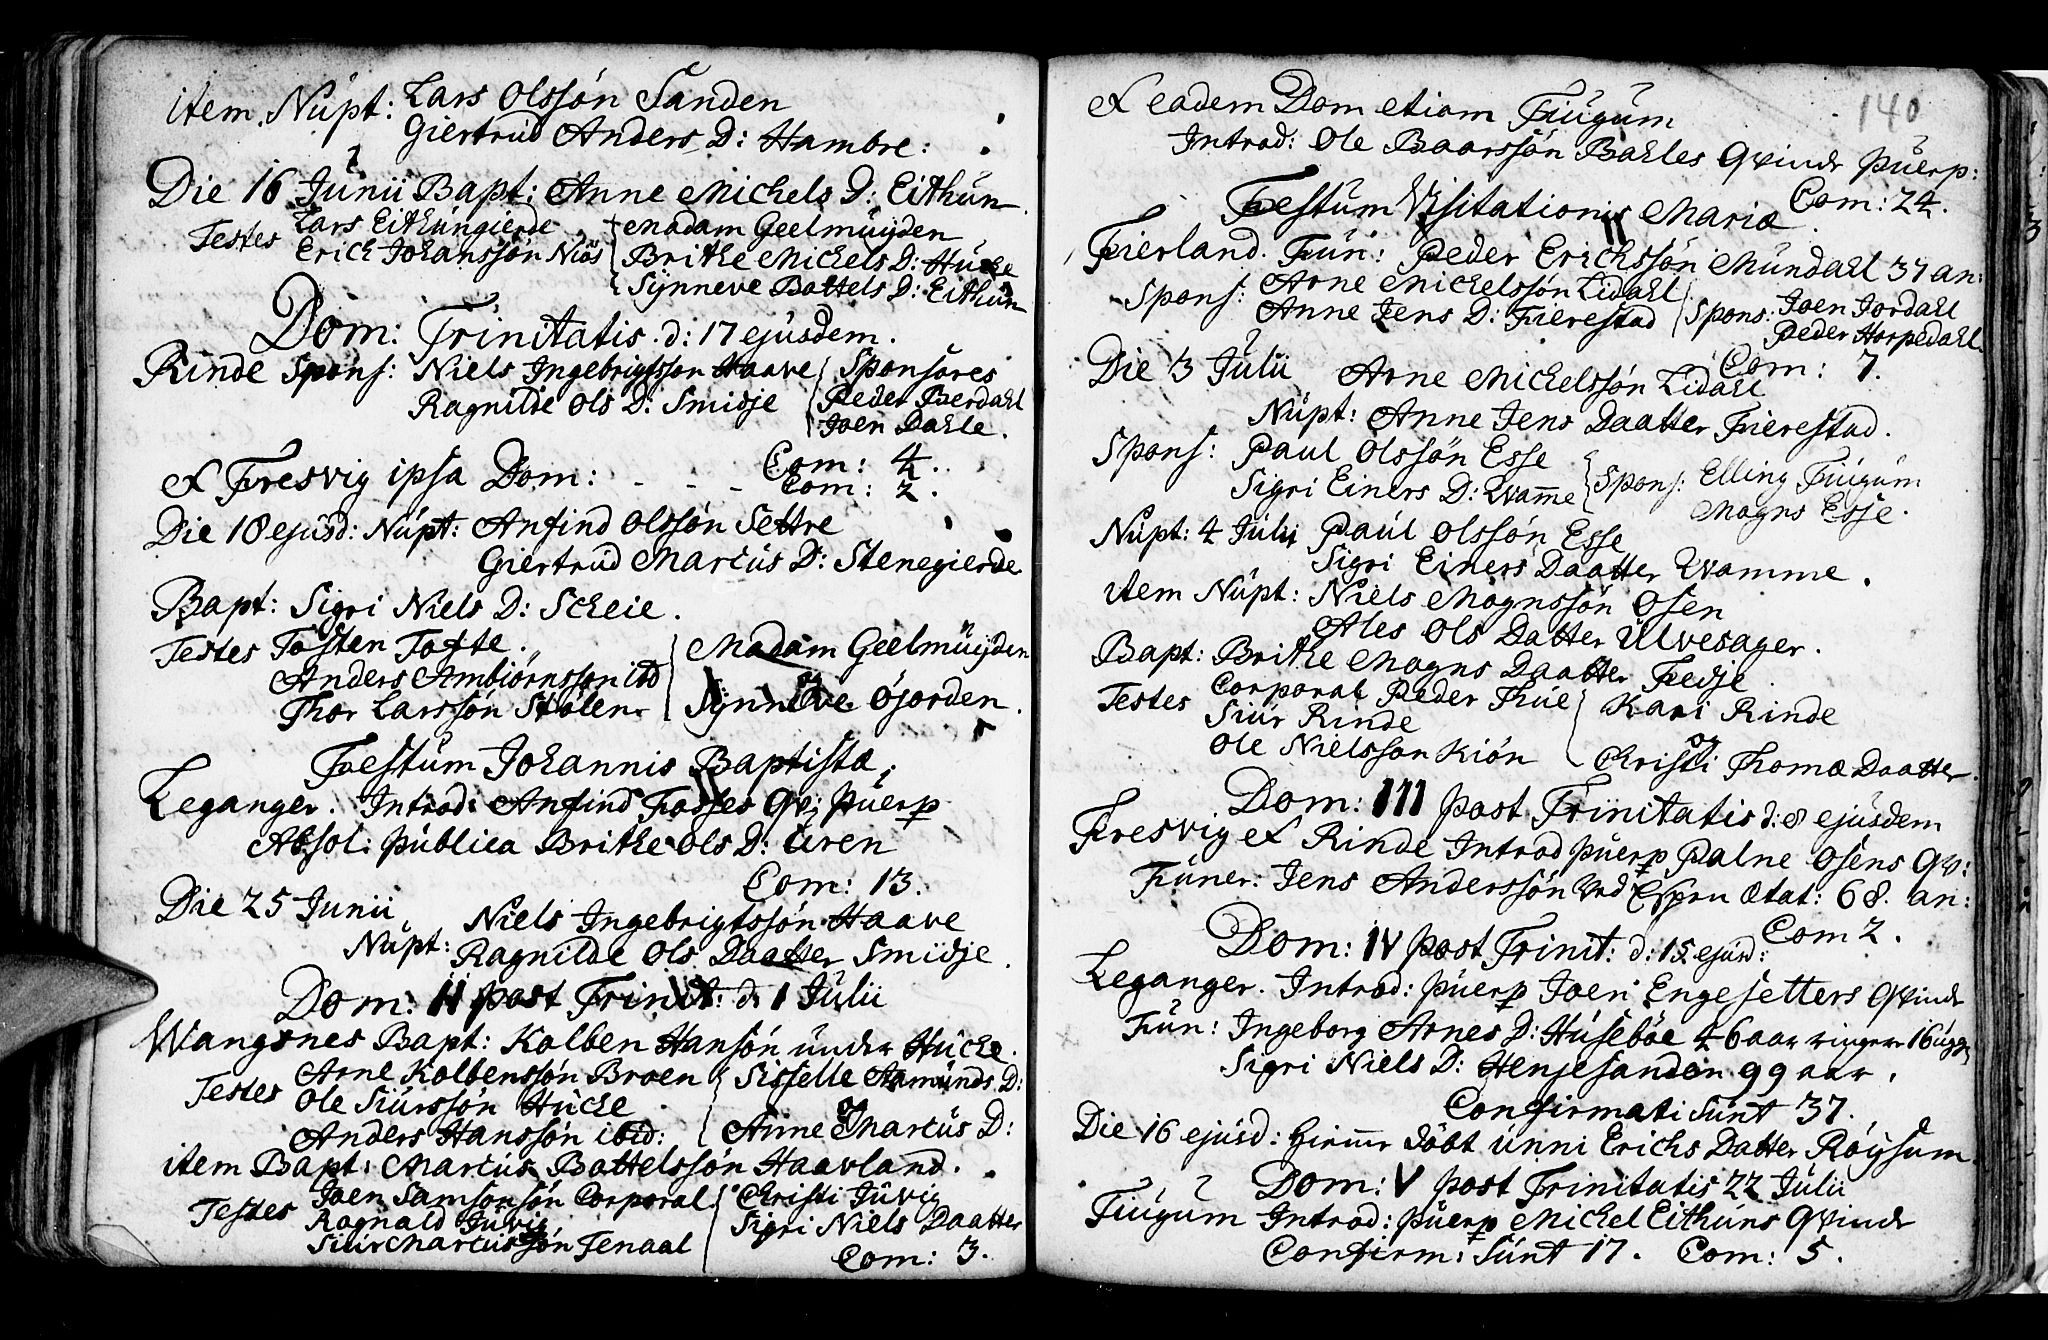 item Nupt: Lars Olssön Sanden
Giertrud Anders D: Hambre:
Die 16 Junii Bapt: Anne Michels D: Eithun
Testes Lars Eithungierde { Madam Geelmuÿden
Erich Johanssön Niøs { Brithe Michels D: Hucke
{ Sÿnneve Battels D: Eithun
Dom: Trinitatis d: 17 ejusdem.
Rinde Spons: Niels Ingebrigtsson Haave { Sponsores
Ragnilde Ols D: Smidje { Peder Berdahl
Joen Dahle.
& Fresvig ipsa Dom: - - - Com: 4.
Com: 2.
Die 18 ejusd: Nupt: Anfind Olssön Settre
Giertrud Marcus D: Stenegierde
Bapt: Sigri Niels D: Scheie.
Testes Tosten Tofte. { Madam Geelmuÿden
Anders Ambiörnsson ibd { og
Thor Larssön Stølen { Sÿnneve Öjorden.
Festum Johannis Baptistæ.
Leganger. Introd: Anfind Fosses Qv: puerp
Absol: publica Brithe Ols D: Uren
Com: 13.
Die 25 Junii
Niels Ingebrigtssön Haave
Nupt: Ragnilde Ols Daatter Smidje.
Dom: II post Trinit: d: 1 Julii
Wangsnes Bapt: Kolben Hansön under Hucke.
Testes Arne Kolbenssön Broen { Sisselle Aamunds D:
Ole Siurssön Hucke { og
Anders Hanssön ibid: { Anne Marcus D:
item Bapt: Marcus Battelssön Haavland.
Testes Joen Samsonsön Corporal { Christi Juvig
Ragnald Juvig { Sigri Niels Daatter
Siur Marcussön Fenaal
Com: 3.
140
& eadem Dom etiam Fiugum
Introd: Ole Baarssön Bahles Qvinde puerp:
Com: 24.
Festum Visitationis Mariæ
Fierland. Fun: Peder Erichssön Mundahl 37 an:
Spons: Arne Michelssön Lidahl { Spons: Joen Jordahl
Anne Jens D: Fierestad { Peder Horpedahl
Com: 7.
Die 3 Julii Arne Michelssön Lidahl
Nupt: Anne Jens Daatter Fierestad.
Spons: Paul Olssön Esse { Spons: Elling Fiugum
Sigri Einers D: Wamme { Mogns Esse.
Nupt: 4 Julii Paul Olssön Esse
Sigri Einers Daatter Wamme.
item Nupt: Niels Mognssön Osen
Ales Ols Datter Ulvesager.
Bapt: Brithe Mogns Daatter Fedje.
Testes Corporal Peder Thue { Kari Rinde
Siur Rinde { og
Ole Nielsson Kiön { Christi Thomæ Daatter.
Dom: III post Trinitatis d: 8 ejusdem
Fresvig & Rinde Introd puerp Palne Osens Qv:
Funer: Jens Anderssön ved Espen Ætat: 68. an:
Com 2.
Dom: IV post Trinit: d: 15 ejusd:
Leganger. Introd: puerp Joen Engesetters Qvinde
Fun: Ingeborg Arnes D: Huseböe 46 aar ringere 16 ugg
Sigri Niels D: Henjesanden 99 aar.
Confirmati Sunt 37.
Die 16 ejusd: döbt Unni Erichs Datter Röÿsum.
Dom: V post Trinitatis 22 Julii
Fiugum Introd: puerp Michel Eithuns Qvinde
Confirm: Sunt 17. Com: 5.